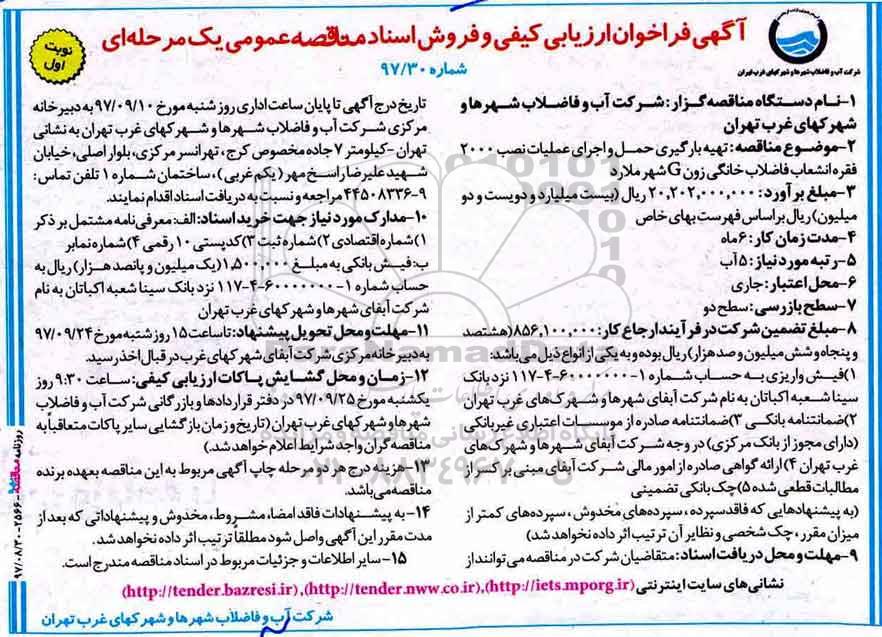 آگهی فراخوان ارزیابی کیفی و فروش اسناد مناقصه عمومی یک مرحله‌ای
شماره ۹۷/۳۰
نوبت
اول
شرکت آب و فاضلاب شهرها و شهرکهای غرب تهران
۱-نام دستگاه مناقصه گزار: شرکت آب و فاضلاب شهرها و
شهرکهای غرب تهران
۲-موضوع مناقصه: تهیه بارگیری حمل و اجرای عملیات نصب ۲۰۰۰
فقره انشعاب فاضلاب خانگی زون G شهر ملارد
۳-مبلغ برآورد: ۲۰,۲۰۲,۰۰۰,۰۰۰ ریال (بیست میلیارد و دویست و دو
میلیون) ریال بر اساس فهرست بهای خاص
۴-مدت زمان کار: ۶ماه
۵-رتبه مورد نیاز: ۵ آب
۶-محل اعتبار: جاری
۷-سطح بازرسی: سطح دو
۸-مبلغ تضمین شرکت در فرآیند ارجاع کار: ۸۵۶,۱۰۰,۰۰۰(هشتصد
و پنجاه و شش میلیون و صد هزار) ریال بوده و به یکی از انواع ذیل می‌باشد:
۱)فیش واریزی به حساب شماره ۱-۶۰۰۰۰۰۰۰-۴-۱۱۷ نزد بانک
سینا شعبه اکباتان به نام شرکت آبفای شهرها و شهرک های غرب تهران
۲)ضمانتنامه بانکی ۳)ضمانتنامه صادره از موسسات اعتباری غیربانکی
(دارای مجوز از بانک مرکزی) در وجه شرکت آبفای شهرها و شهرک‌های
غرب تهران ۴)ارائه گواهی صادره از امور مالی شرکت آبفای مبنی بر کسر از
مطالبات قطعی شده ۵)چک بانکی تضمینی
(به پیشنهادهایی که فاقد سپرده، سپرده‌های مخدوش، سپرده‌های کمتر از
میزان مقرر، چک شخصی و نظایر آن ترتیب اثر داده نخواهد شد)
۹-مهلت و محل دریافت اسناد: متقاضیان شرکت در مناقصه می‌توانند از
تاریخ درج آگهی تا پایان ساعت اداری روز شنبه مورخ ۹۷/۰۹/۱۰ به دبیرخانه
مرکزی شرکت آب و فاضلاب شهرها و شهرکهای غرب تهران به نشانی
تهران -کیلومتر ۷ جاده مخصوص کرج، تهرانسر مرکزی، بلوار اصلی، خیابان
شهید علیرضا راسخ مهر (یکم غربی)، ساختمان شماره ۱ تلفن تماس:
۹-۴۴۵۰۸۳۳۶ مراجعه و نسبت به دریافت اسناد اقدام نمایند.
۱۰-مدارک مورد نیاز جهت خرید اسناد: الف: معرفی نامه مشتمل بر ذکر
۱)شماره اقتصادی ۲)شماره ثبت ۳)کدپستی ۱۰ رقمی ۴)شماره نمابر
ب: فیش بانکی به مبلغ ۱,۵۰۰,۰۰۰(یک میلیون و پانصد هزار) ریال به
حساب شماره ۱-۶۰۰۰۰۰۰۰-۴-۱۱۷ نزد بانک سینا شعبه اکباتان به نام
شرکت آبفای شهرها و شهرکهای غرب تهران
۱۱-مهلت و محل تحویل پیشنهاد: تا ساعت ۱۵ روز شنبه مورخ ۹۷/۰۹/۲۴
به دبیرخانه مرکزی شرکت آبفای شهرکهای غرب در قبال اخذ رسید.
۱۲-زمان و محل گشایش پاکات ارزیابی کیفی: ساعت ۹:۳۰ روز
یکشنبه مورخ ۹۷/۰۹/۲۵ در دفتر قراردادها و بازرگانی شرکت آب و فاضلاب
شهرها و شهرکهای غرب تهران (تاریخ و زمان بازگشایی سایر پاکات متعاقباً به
مناقصه گران واجد شرایط اعلام خواهد شد.)
۱۳-هزینه درج هر دو مرحله چاپ آگهی مربوط به این مناقصه بعهده برنده
مناقصه می‌باشد.
۱۴-به پیشنهادات فاقد امضا، مشروط، مخدوش و پیشنهاداتی که بعد از
مدت مقرر این آگهی واصل شود مطلقاً ترتیب اثر داده نخواهد شد.
۱۵-سایر اطلاعات و جزئیات مربوط در اسناد مناقصه مندرج است.
نشانی‌های سایت اینترنتی (http://iets.mporg.ir)،(http://tender.nww.co.ir)،(http://tender.bazresi.ir)
شرکت آب و فاضلاب شهرها و شهرکهای غرب تهران
روزنامه مناقصه -۲۵۶۶- ۹۷/۰۸/۳۰
ParsNamadData